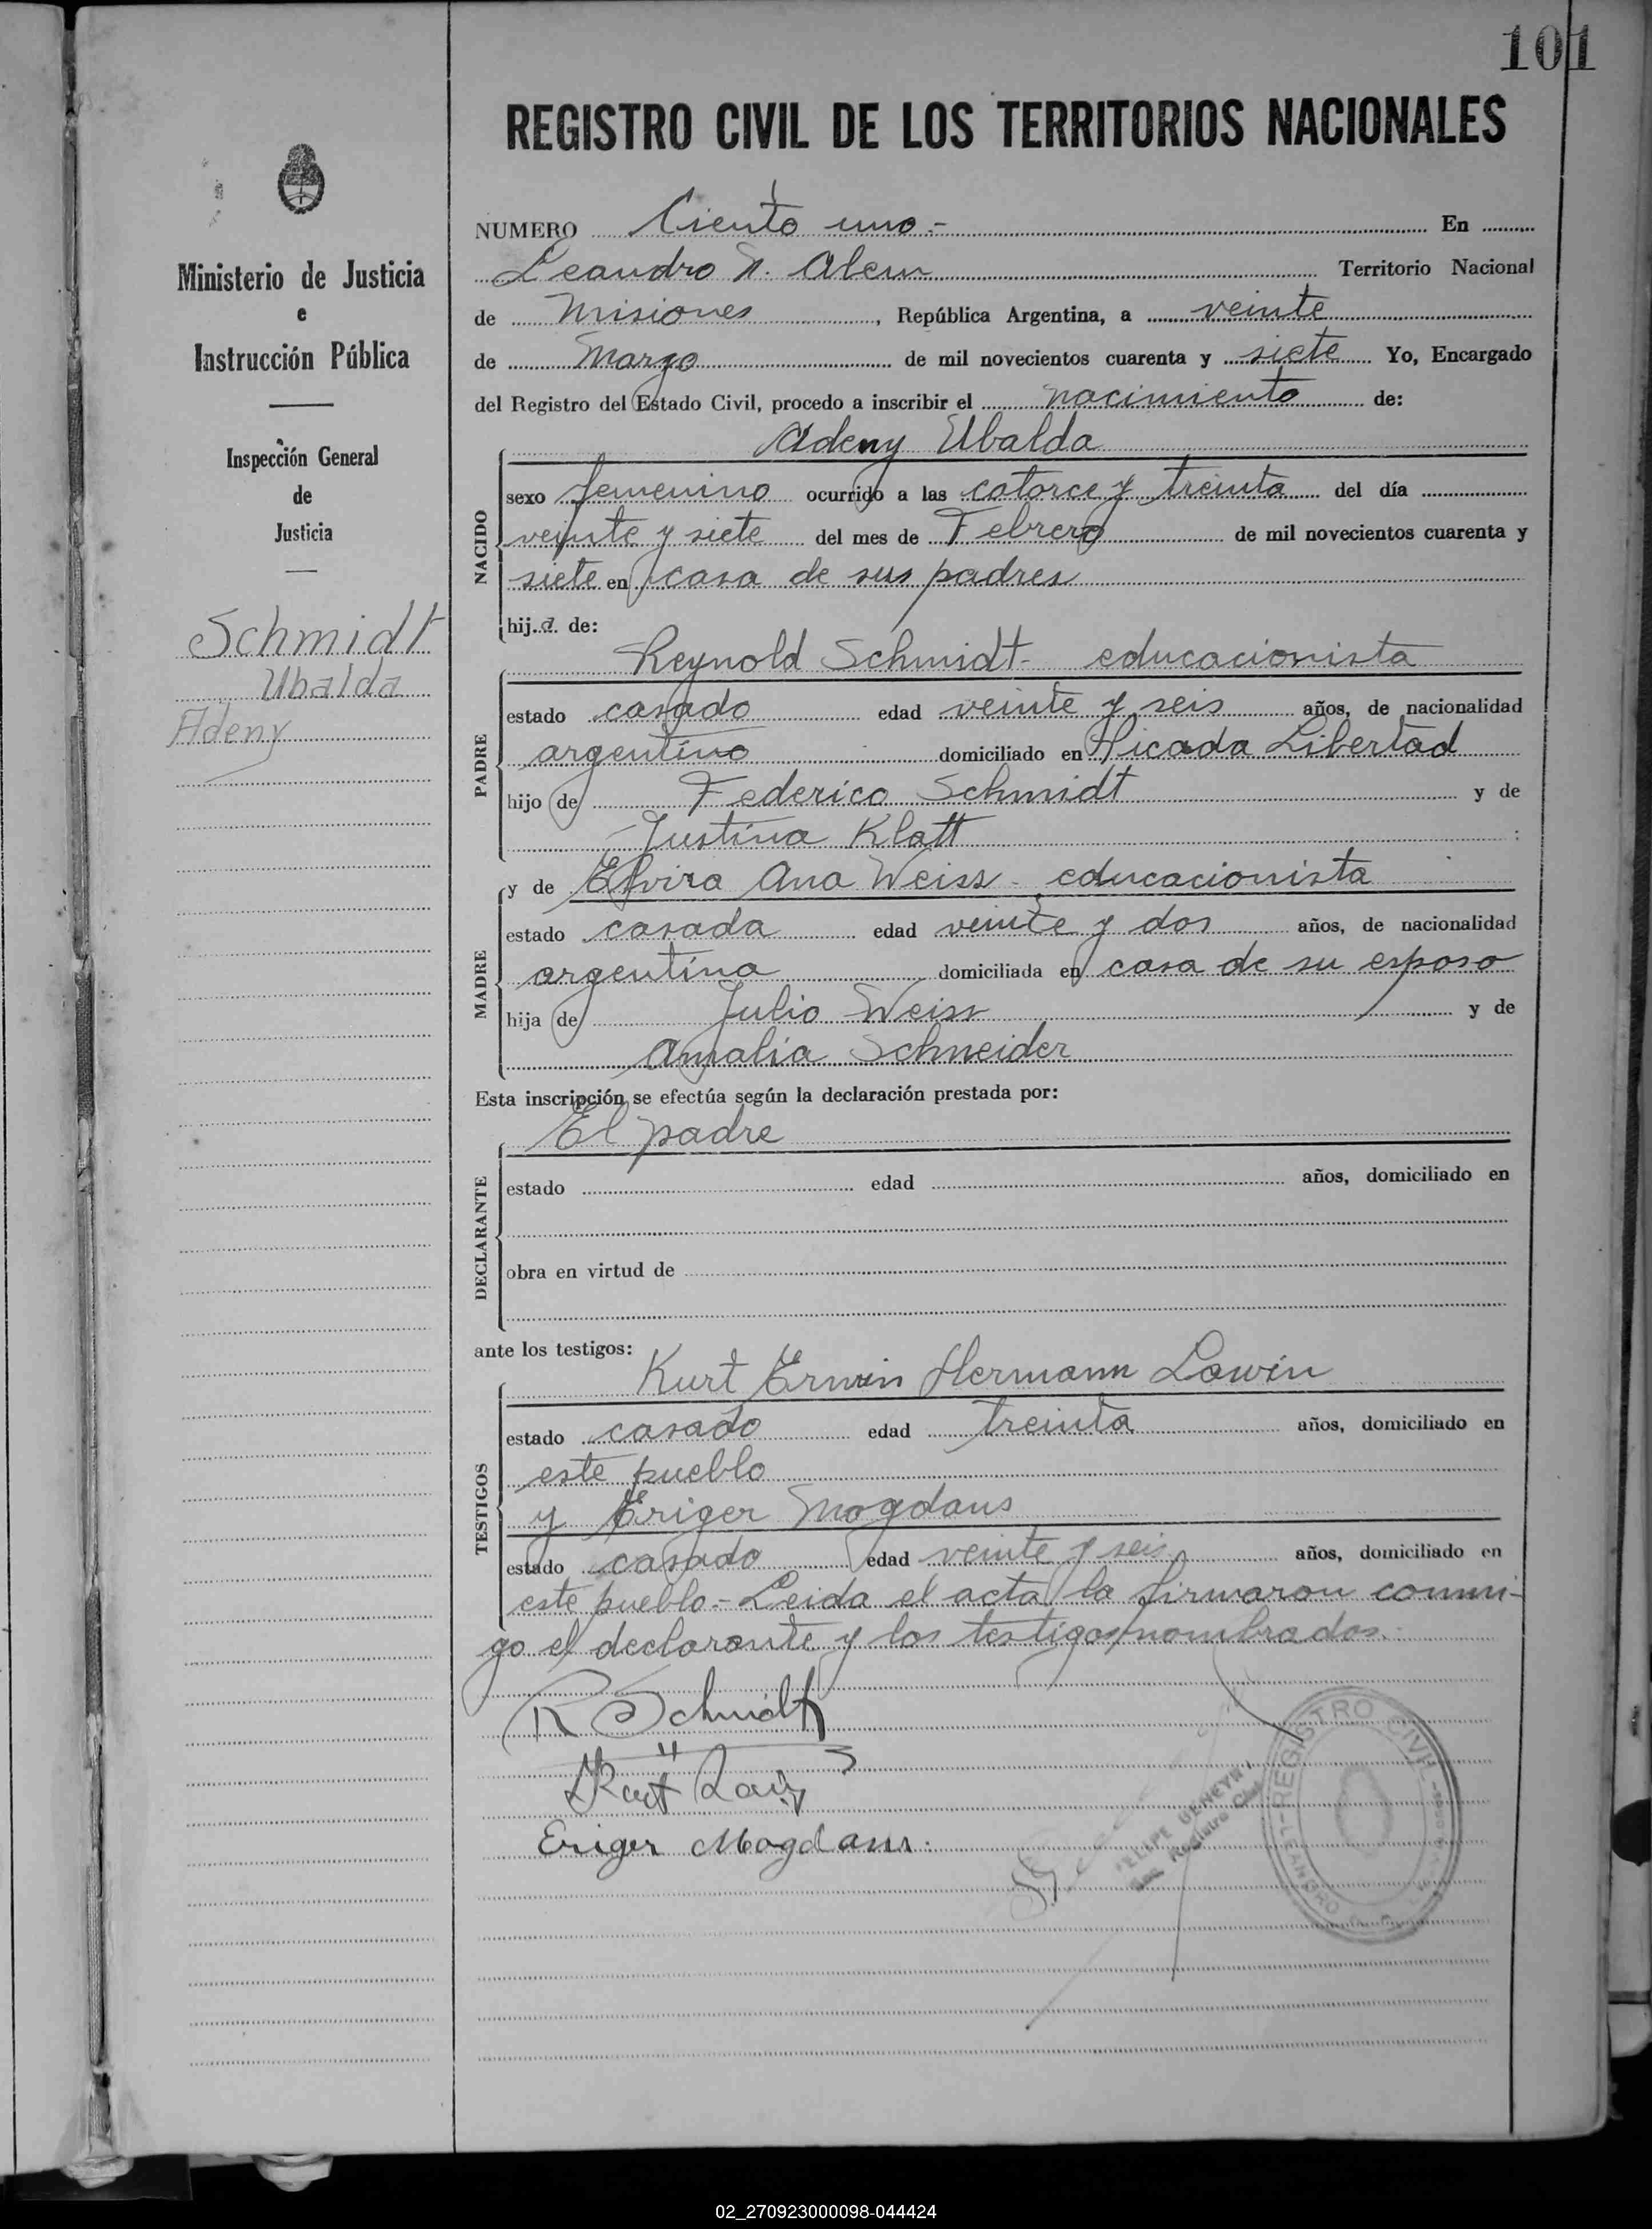 101
REGISTRO CIVIL DE LOS TERRITORIOS NACIONALES
Ministerio de Justicia
e
Instrucción Pública
Inspección General
de
Justicia
Schmidt
Ubalda
Adeny
NUMERO Ciento uno.- En
Leandro N. Alem Territorio Nacional
de Misiones, República Argentina, a veinte
de Marzo de mil novecientos cuarenta y siete Yo, Encargado
del Registro del Estado Civil, procedo a inscribir el nacimiento de:
Adeny Ubalda
NACIDO
sexo femenino ocurrido a las catorce y treinta del día
veinte y siete del mes de Febrero de mil novecientos cuarenta y
siete en casa de sus padres
hij.a. de:
Reynold Schmidt - educacionista
PADRE
estado casado edad veinte y seis años, de nacionalidad
argentino domiciliado en Picada Libertad
hijo de Federico Schmidt y de
Justina Klatt
y de Elvira Ana Weiss - educacionista
MADRE
estado casada edad veinte y dos años, de nacionalidad
argentina domiciliada en casa de su esposo
hija de Julio Weiss y de
Amalia Schneider
Esta inscripción se efectúa según la declaración prestada por:
El padre
DECLARANTE
estado edad años, domiciliado en
obra en virtud de
ante los testigos:
Kurt Erwin Hermann Lawin
TESTIGOS
estado casado edad treinta años, domiciliado en
este pueblo
y Eriger Magdans
estado casado edad veinte y seis años, domiciliado en
este pueblo.- Leida el acta la firmaron conmi-
go el declarante y los testigos nombrados.-
R Schmidt
Kurt Lawin
Eriger Magdans.
FELIPE
Registro Civil
REGISTRO CIVIL
LEANDRO N.
02_270923000098-044424